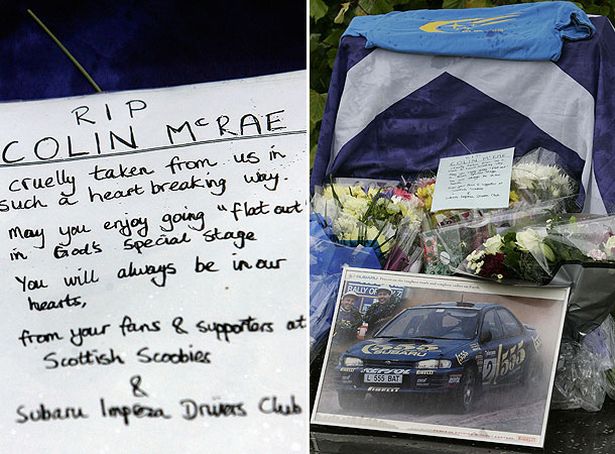 RIP
COLIN McRAE
cruelly taken from us in
such a heart breaking way.
May you enjoy going "flat out"
in God's Special Stage
You will always be in our
hearts,
from your fans & supporters at
Scottish Scoobies
&
Subaru Impreza Drivers Club
COLIN McRAE
SUBARU
RALLY OF
SUBARU
555
REPSOL
L 555 BAT
PIRELLI
2
555
PIRELLI